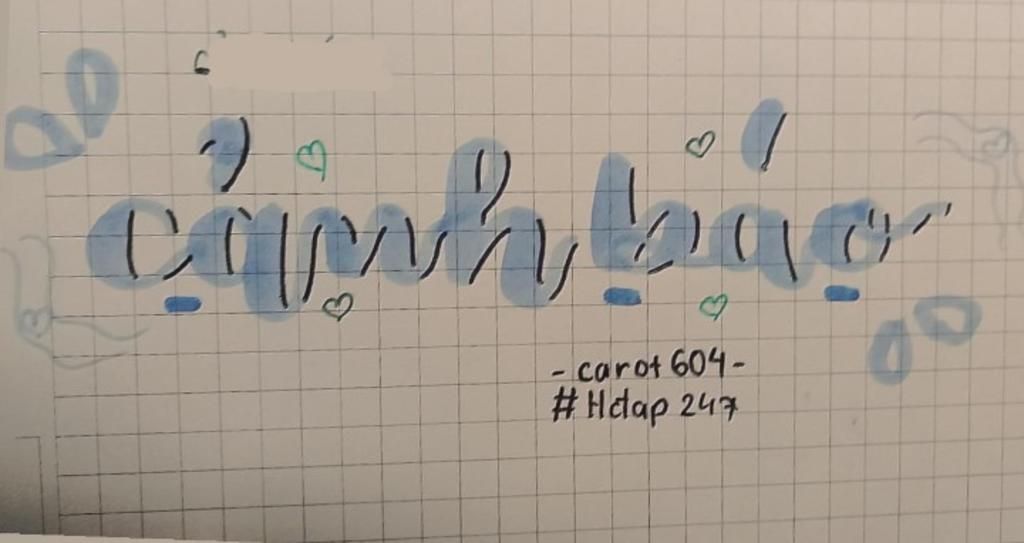 cảnh báo
- carot 604 -
# Hdap 247